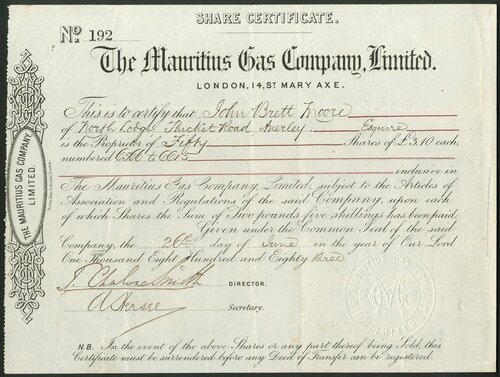 SHARE CERTIFICATE.
No. 192
The Mauritius Gas Company, Limited.
LONDON, 14, ST MARY AXE.
This is to certify that John Brett Moore
of North Lodge Thicket Road Anerley Esquire
is the Proprietor of Fifty Shares of £3.10 each,
numbered to
inclusive in
The Mauritius Gas Company, Limited, subject to the Articles of
Association and Regulations of the said Company, upon each
of which Shares the Sum of Two pounds five shillings has been paid.
Given under the Common Seal of the said
Company, the 26th day of June in the year of Our Lord
One Thousand Eight Hundred and Eighty three
Smith DIRECTOR.
Secretary.
N.B. In the event of the above Shares or any part thereof being Sold, this
Certificate must be surrendered before any Deed of Transfer can be registered.
THE MAURITIUS GAS COMPANY,
LIMITED.
THE MAURITIUS GAS COMPANY
LIMITED